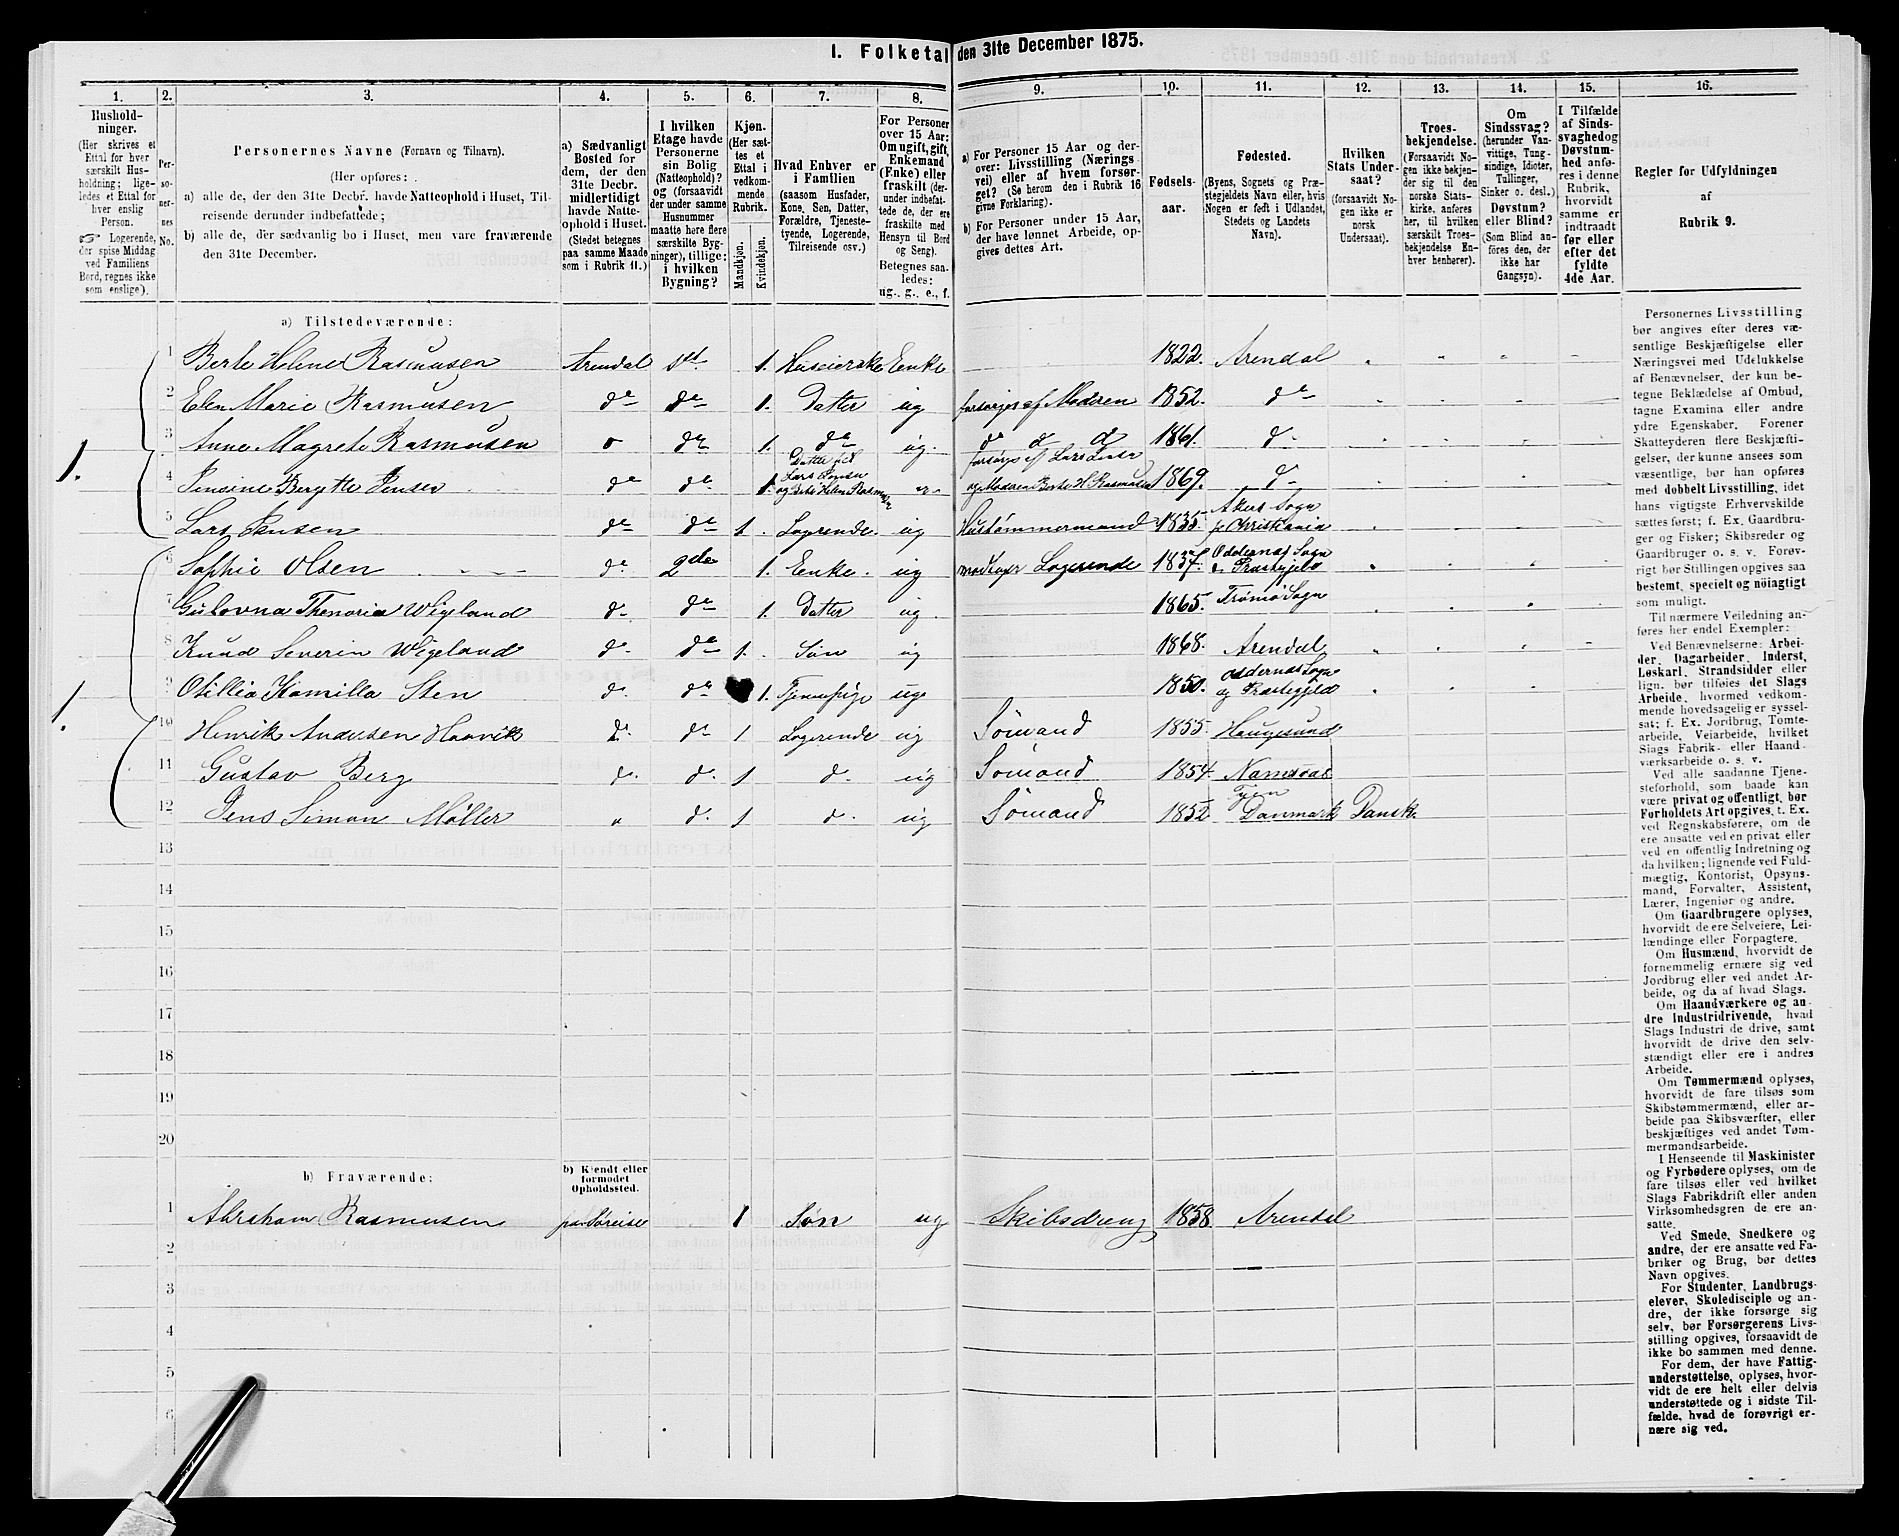 I. Folketal den 31te December 1875.
1. 2. 3. 4. 5. 6. 7. 8. 9. 10. 11. 12. 13. 14. 15. 16.
Hushold-
ninger.
(Her skrives et
Ettal for hver
særskilt Hus-
holdning; lige-
ledes et Ettal for
hver enslig
Person.
☞ Logerende,
der spise Middag
ved Familiens
Bord, regnes ikke
som enslige).
Per-
so-
ner-
nes
No.
Personernes Navne (Fornavn og Tilnavn).
(Her opføres:
a) alle de, der den 31te Decbr. havde Natteophold i Huset, Til-
reisende derunder indbefattede;
b) alle de, der sædvanlig bo i Huset, men vare fraværende
den 31te December.
a) Sædvanligt
Bosted for
dem, der den
31te Decbr.
midlertidigt
havde Natte-
ophold i Huset.
(Stedet betegnes
paa samme Maade
som i Rubrik 11.)
I hvilken
Etage havde
Personerne
sin Bolig
(Natteophold)?
og (forsaavidt
der under samme
Husnummer
maatte høre flere
særskilte Byg-
ninger), tillige:
i hvilken
Bygning?
Kjøn.
(Her sæt-
tes et
Ettal i
vedkom-
mende
Rubrik.
Mandkjøn.
Kvindekjøn.
Hvad Enhver er
i Familien
(saasom Husfader,
Kone, Søn, Datter,
Forældre, Tjeneste-
tyende, Logerende,
Tilreisende osv.)
For Personer
over 15 Aar:
Om ugift, gift,
Enkemand
(Enke) eller
fraskilt (der-
under indbefat-
tede de, der ere
fraskilte med
Hensyn til Bord
og Seng).
Betegnes saa-
ledes:
ug., g., e., f.
a) For Personer 15 Aar og der-
over: Livsstilling (Nærings-
vei) eller af hvem forsør-
get? (Se herom den i Rubrik 16
givne Forklaring).
b) For Personer under 15 Aar,
der have lønnet Arbeide, op-
gives dettes Art.
Fødsels-
aar.
Fødested.
(Byens, Sognets og Præ-
stegjeldets Navn eller, hvis
Nogen er født i Udlandet,
Stedets og Landets
Navn).
Hvilken
Stats Under-
saat?
(forsaavidt No-
gen ikke er
norsk
Undersaat).
Troes-
bekjendelse.
(Forsaavidt No-
gen ikke bekjen-
der sig til den
norske Stats-
kirke, anføres
her, til hvilken
særskilt Troes-
bekjendelse En-
hver henhører).
Om
Sindssvag?
(herunder Van-
vittige, Tung-
sindige, Idioter,
Tullinger,
Sinker o. desl.)
Døvstum?
eller Blind?
(Som Blind an-
føres den, der
ikke har
Gangsyn).
I Tilfælde
af Sinds-
svaghed og
Døvstum-
hed anfø-
res i denne
Rubrik,
hvorvidt
samme er
indtraadt
før eller
efter det
fyldte
4de Aar.
Regler for Udfyldningen
af
Rubrik 9.
a) Tilstedeværende:
1 Berte Helene Rasmusen Arendal 1st 1. Huseierske Enke 1822. Arendal
2 Elen Marie Rasmusen do do 1. Datter ug forsørges af Modren 1852. do
1. 3 Anne Magrete Rasmusen do 1. do ug. do d d 1861. d
4 Jensine Bergitte Jensen do do 1. Datter af Lars Jensen og Berte Helene Rasmusen forsørges af Lars Jensen og Modren Berte H. Rasmusen 1869. d
5 Lars Jensen do do 1 Logerende. ug Hustømmermand 1835. Akers Sogn p Christiania
6 Sophie Olsen do 2de 1. Enke. ug modtager Logerende Oddernes Sogn og Præstegjeld
7 Thenoria Wigeland d do 1. Datter ug. 1865. Tromø Sogn
8 Knud Severin Wigeland d do 1. Søn ug 1868. Arendal
9 Otillia Kamilla Sten d. do 1. Tjenestpige uge 1850. Oddernes Sogn og Præstegjeld
1. 10 Henrik Andersen Haavik d. do 1 Logerende ug Sømand 1855. Haugesund
11 Gustav Berg d. d. 1 d. ug Sømand 1854. Namsoas
12 Jens Simon Møller " d. 1 d. ug Sømand 1852 Fyen Danmark Dansk.
13
14
15
16
17
18
19
20
b) Fraværende:
b) Kjendt eller
formodet
Opholdssted.
1 Abraham Rasmusen paa Søreise 1 Søn ug Skibsdreng 1858. Arendal
2
3
4
5
6
Personernes Livsstilling
bør angives efter deres væ-
sentlige Beskjæftigelse eller
Næringsvei med Udelukkelse
af Benævnelser, der kun be-
tegne Beklædelse af Ombud,
tagne Examina eller andre
ydre Egenskaber. Forener
Skatteyderen flere Beskjæfti-
gelser, der kunne ansees som
væsentlige, bør han opføres
med dobbelt Livsstilling, idet
hans vigtigste Erhvervskilde
sættes først; f. Ex. Gaardbru-
ger og Fisker; Skibsreder og
Gaardbruger o. s. v. Forøv-
rigt bør Stillingen opgives saa
bestemt, specielt og nøiagtigt
som muligt.
Til nærmere Veiledning an-
føres her endel Exempler:
Ved Benævnelserne: Arbei-
der, Dagarbeider, Inderst,
Løskarl, Strandsidder eller
lign. bør tilføies det Slags
Arbeide, hvormed vedkom-
mende hovedsagelig er syssel-
sat; f. Ex. Jordbrug, Tomte-
arbeide, Veiarbeide, hvilket
Slags Fabrik- eller Haand-
værksarbeide o. s. v.
Ved alle saadanne Tjene-
steforhold, som baade kan
være privat og offentligt, bør
Forholdets Art opgives, t. Ex.
ved Regnskabsførere, om de
ere ansatte ved en privat eller
ved en offentlig Indretning og
da hvilken; lignende ved Fuld-
mægtig, Kontorist, Opsyns-
mand, Forvalter, Assistent,
Lærer, Ingeniør og andre.
Om Gaardbrugere oplyses,
hvorvidt de ere Selveiere, Lei-
lændinge eller Forpagtere.
Om Husmænd, hvorvidt de
fornemmelig ernære sig ved
Jordbrug eller ved andet Ar-
beide, og da af hvad Slags.
Om Haandværkere og an-
dre Industridrivende, hvad
Slags Industri de drive, samt
hvorvidt de drive den selv-
stændigt eller ere i andres
Arbeide.
Om Tømmermænd oplyses,
hvorvidt de fare tilsøs som
Skibstømmermænd, eller ar-
beide paa Skibsværfter, eller
beskjæftiges ved andet Tøm-
mermandsarbeide.
I Henseende til Maskinister
og Fyrbødere oplyses, om de
fare tilsøs eller ved hvilket
Slags Fabrikdrift eller anden
Virksomhedsgren de ere an-
satte.
Ved Smede, Snedkere og
andre, der ere ansatte ved Fa-
briker og Brug, bør dettes
Navn opgives.
For Studenter, Landbrugs-
elever, Skoledisciple og an-
dre, der ikke forsørge sig
selv, bør Forsørgerens Livs-
stilling opgives, forsaavidt de
ikke bo sammen med denne.
For dem, der have Fattig-
understøttelse, oplyses, hvor-
vidt de ere helt eller delvis
understøttede og i sidste Til-
fælde, hvad de forøvrigt er-
nære sig ved.